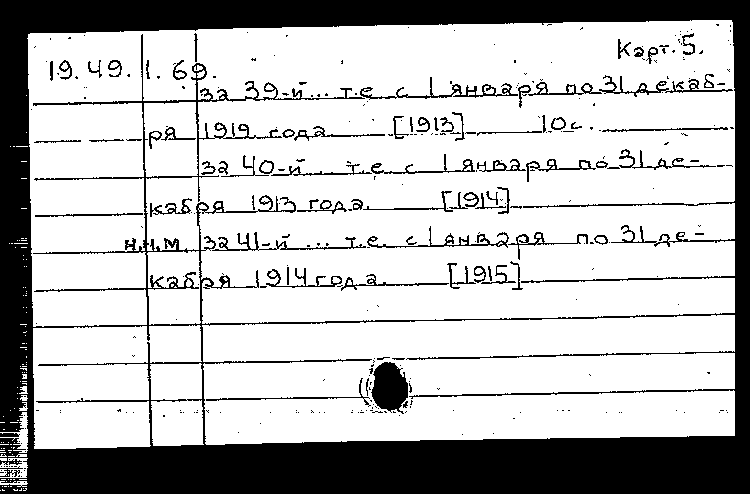 Карт. 5.
19.49.1.69.
за 39-й... т.е. с 1 января по 31 декаб-
ря 1919 года [1913] 10 с.
за 40-й... т.е. с 1 января по 31 де-
кабря 1913 года. [1914]
н.н.м. за 41-й ... т.е. с 1 января по 31 де-
кабря 1914 года. [1915]